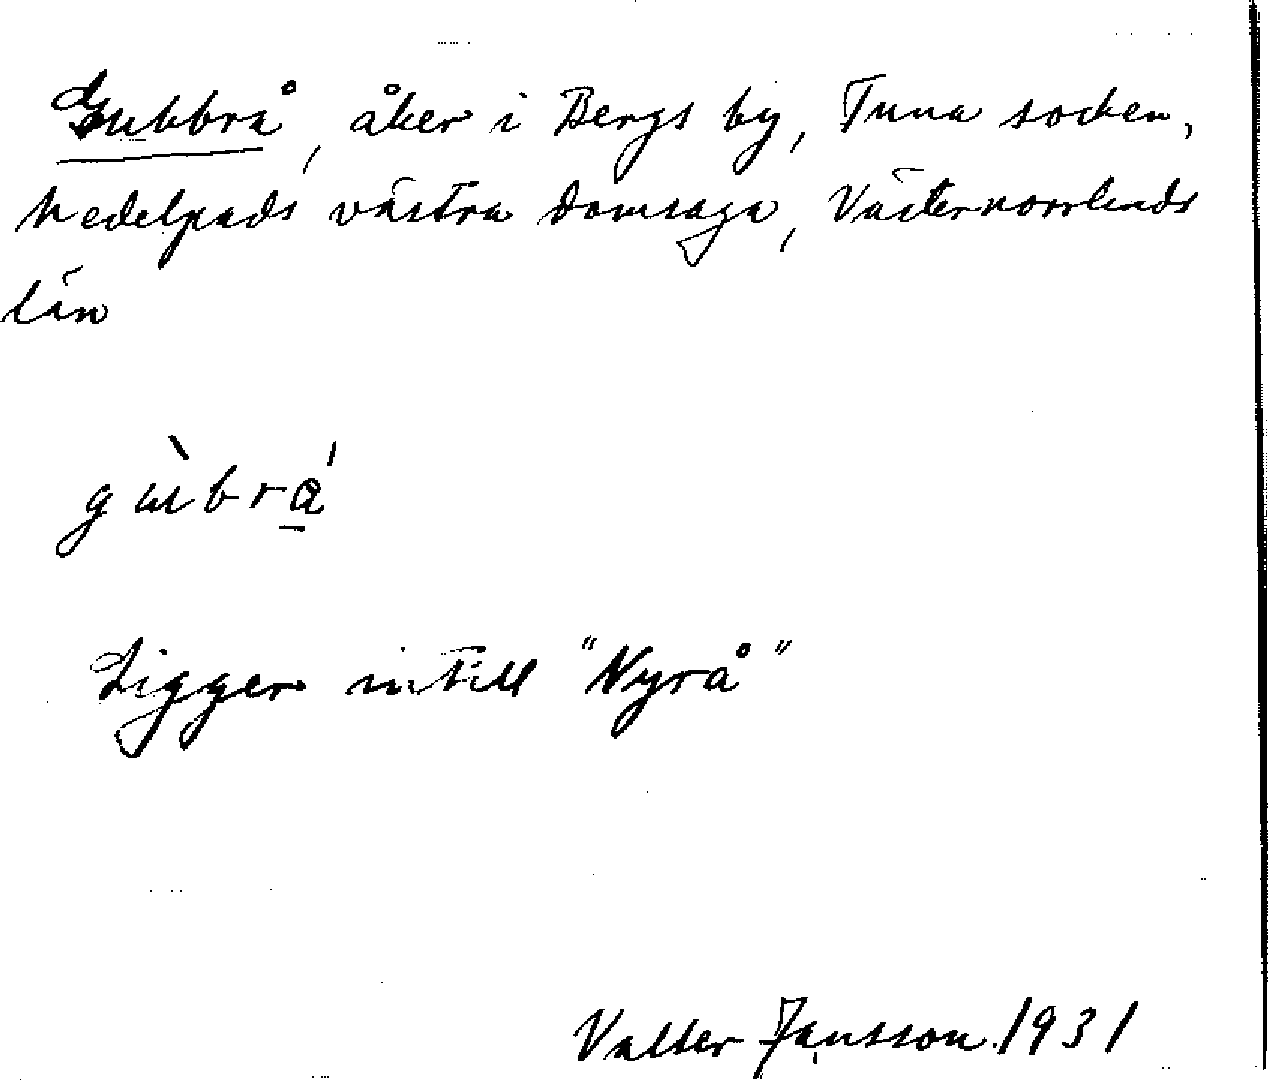 Gubbrå, åker i Bergs by, Tuna socken,
Medelpads västra domsaga, Västernorrlands
län
gùbra̲'
Ligger intill "Nyrå"
Valter Jansson 1931